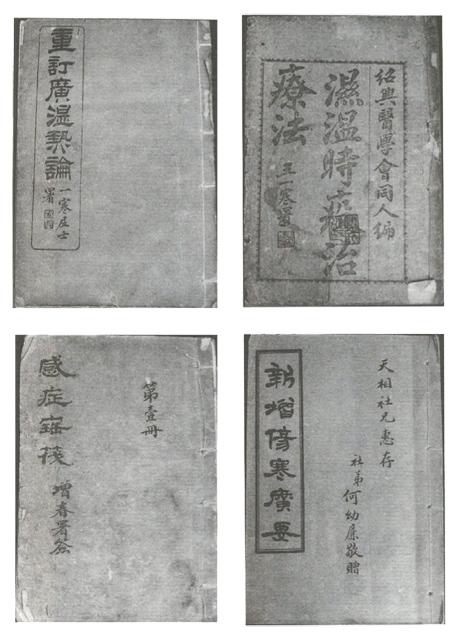 重訂廣溫熱論
一寒居士
署
紹興醫學會同人編
濕溫時疫治
療法
王一寒署
感症寶筏
增春署簽
第壹冊
新增傷寒廣要
天相社兄惠存
社弟何幼廉敬贈